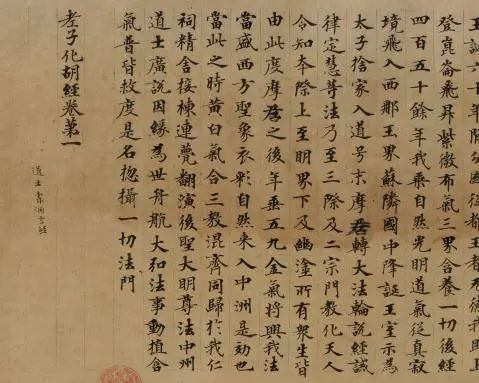 登崑崙飛昇紫微布氣三界含養一切後經
四百五十餘年我乘自然光明道氣從真寂
境飛入西那王界蘇隣國中降誕王室示為
太子捨家入道号末摩尼轉大法輪說經誡
律定慧等法乃至三際及二宗門教化天人
令知本際上至明界下及幽塗所有衆生皆
由此度摩尼之後年垂五九金氣將興我法
當盛西方聖象衣彩自然來入中洲是効也
當此之時黃白氣合三教混齊同歸於我仁
祠精舍接棟連甍翻演後聖大明尊法中州
道士廣說因緣為世舟航大弘法事動植含
氣普皆救度是名揔攝一切法門
老子化胡經卷第一
道士 索洞玄經